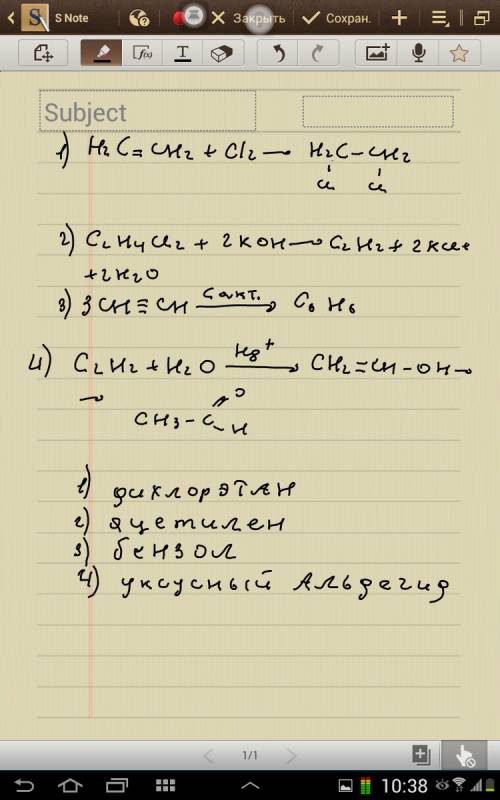 S Note
Закрыть
Сохран.
Subject
1) H₂C=CH₂ + Cl₂ → H₂C-CH₂
Cl Cl
2) C₂H₄Cl₂ + 2KOH → C₂H₂ + 2KCl +
+2H₂O
3) 3CH≡CH C акт. → C₆H₆
4) C₂H₂ + H₂O Hg⁺ → CH₂=CH-OH →
→ CH₃-C=O
-H
1) дихлорэтан
2) ацетилен
3) бензол
4) уксусный альдегид
1/1
10:38